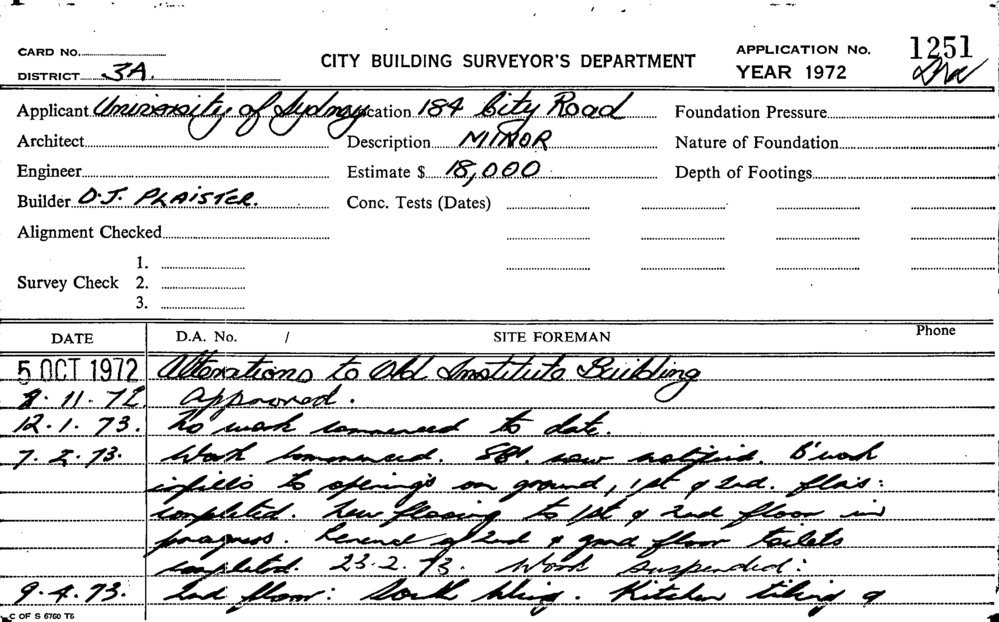 CARD No. CITY BUILDING SURVEYOR'S DEPARTMENT APPLICATION No. 1251
DISTRICT 3A. YEAR 1972
Applicant University of Sydney Location 184 City Road Foundation Pressure
Architect Description MINOR Nature of Foundation
Engineer Estimate $ 18,000 Depth of Footings
Builder D.J. PLAISTER. Conc. Tests (Dates)
Alignment Checked
1.
Survey Check 2.
3.
DATE D.A. No. / SITE FOREMAN Phone
5 OCT 1972 Alterations to Old Institute Building
8.11.72 approved.
12.1.73. no work commenced to date.
7.2.73. Work commenced. now notified. B'work
infills to openings on ground, 1st & 2nd. flrs:
completed. New flooring to 1st & 2nd floor in
progress. 2nd & grnd floor toilets
completed. 23.2.73. Work suspended:
9.4.73. 2nd floor: South Wing. Kitchen tiling &
C OF S 6760 T6